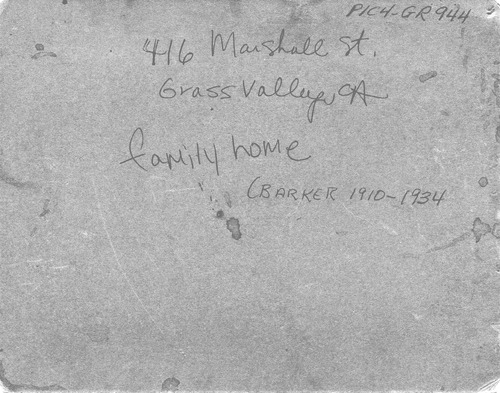 PIC4-GR944
416 Marshall St.
Grass Valley, CA
family home
(BARKER 1910-1934